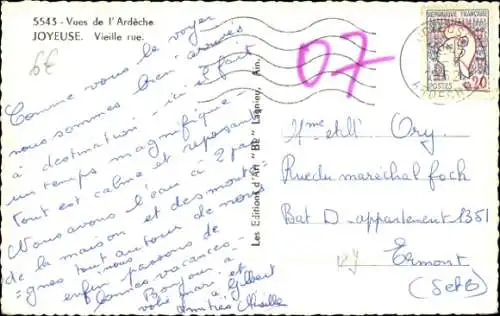 5543 - Vues de l'Ardèche
JOYEUSE. Vieille rue.
6€
Comme vous le voyez
nous sommes bien arrivés
à destination ici il fait
un temps magnifique.
Tout est calme et reposant
Nous avons l'eau à 2 pas
de la maison et des monta-
gnes tout autour de nous
enfin nous passons de
bonnes vacances.
Bonjour à
votre mari et
à Gilbert
Amitiés
Les Editions d'Art "BE" Lagnieu, Ain.
07
REPUBLIQUE FRANCAISE
POSTES 0,20
Mme Ory
Rue du maréchal foch
Bat D - appartement 1351
Ermont
(S et O)